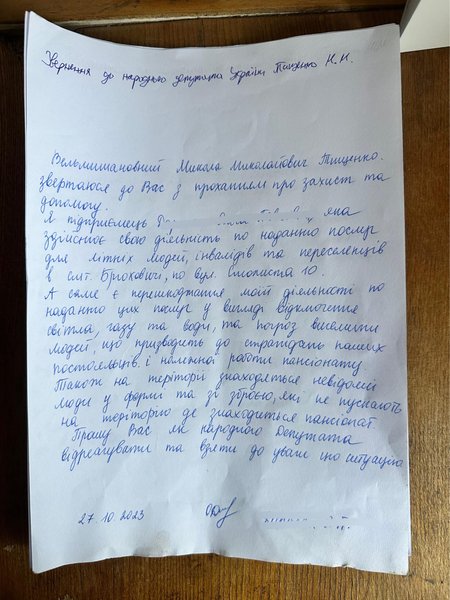 Звернення до народного депутата України Тищенко М.М.
Вельмишановний Микола Миколайович Тищенко.
звертаюся до Вас з проханням про захист та
допомогу.
Я підприємець яка
здійснює свою діяльність по наданню послуг
для літніх людей, інвалідів та переселенців
в смт. Брюховичі, по вул. Смолиста 10.
А саме є перешкоджання моїй діяльності по
наданню цих послуг у вигляді відключення
світла, газу та води, та погроз виселити
людей, що призводить до страждань наших
постояльців і належної роботи пансіонату.
Також на території знаходяться невідомі
люди у формі та зі зброєю, які не пускають
на територію де знаходиться пансіонат
Прошу Вас як народного Депутата
відреагувати та взяти до уваги цю ситуацію
27.10.2023